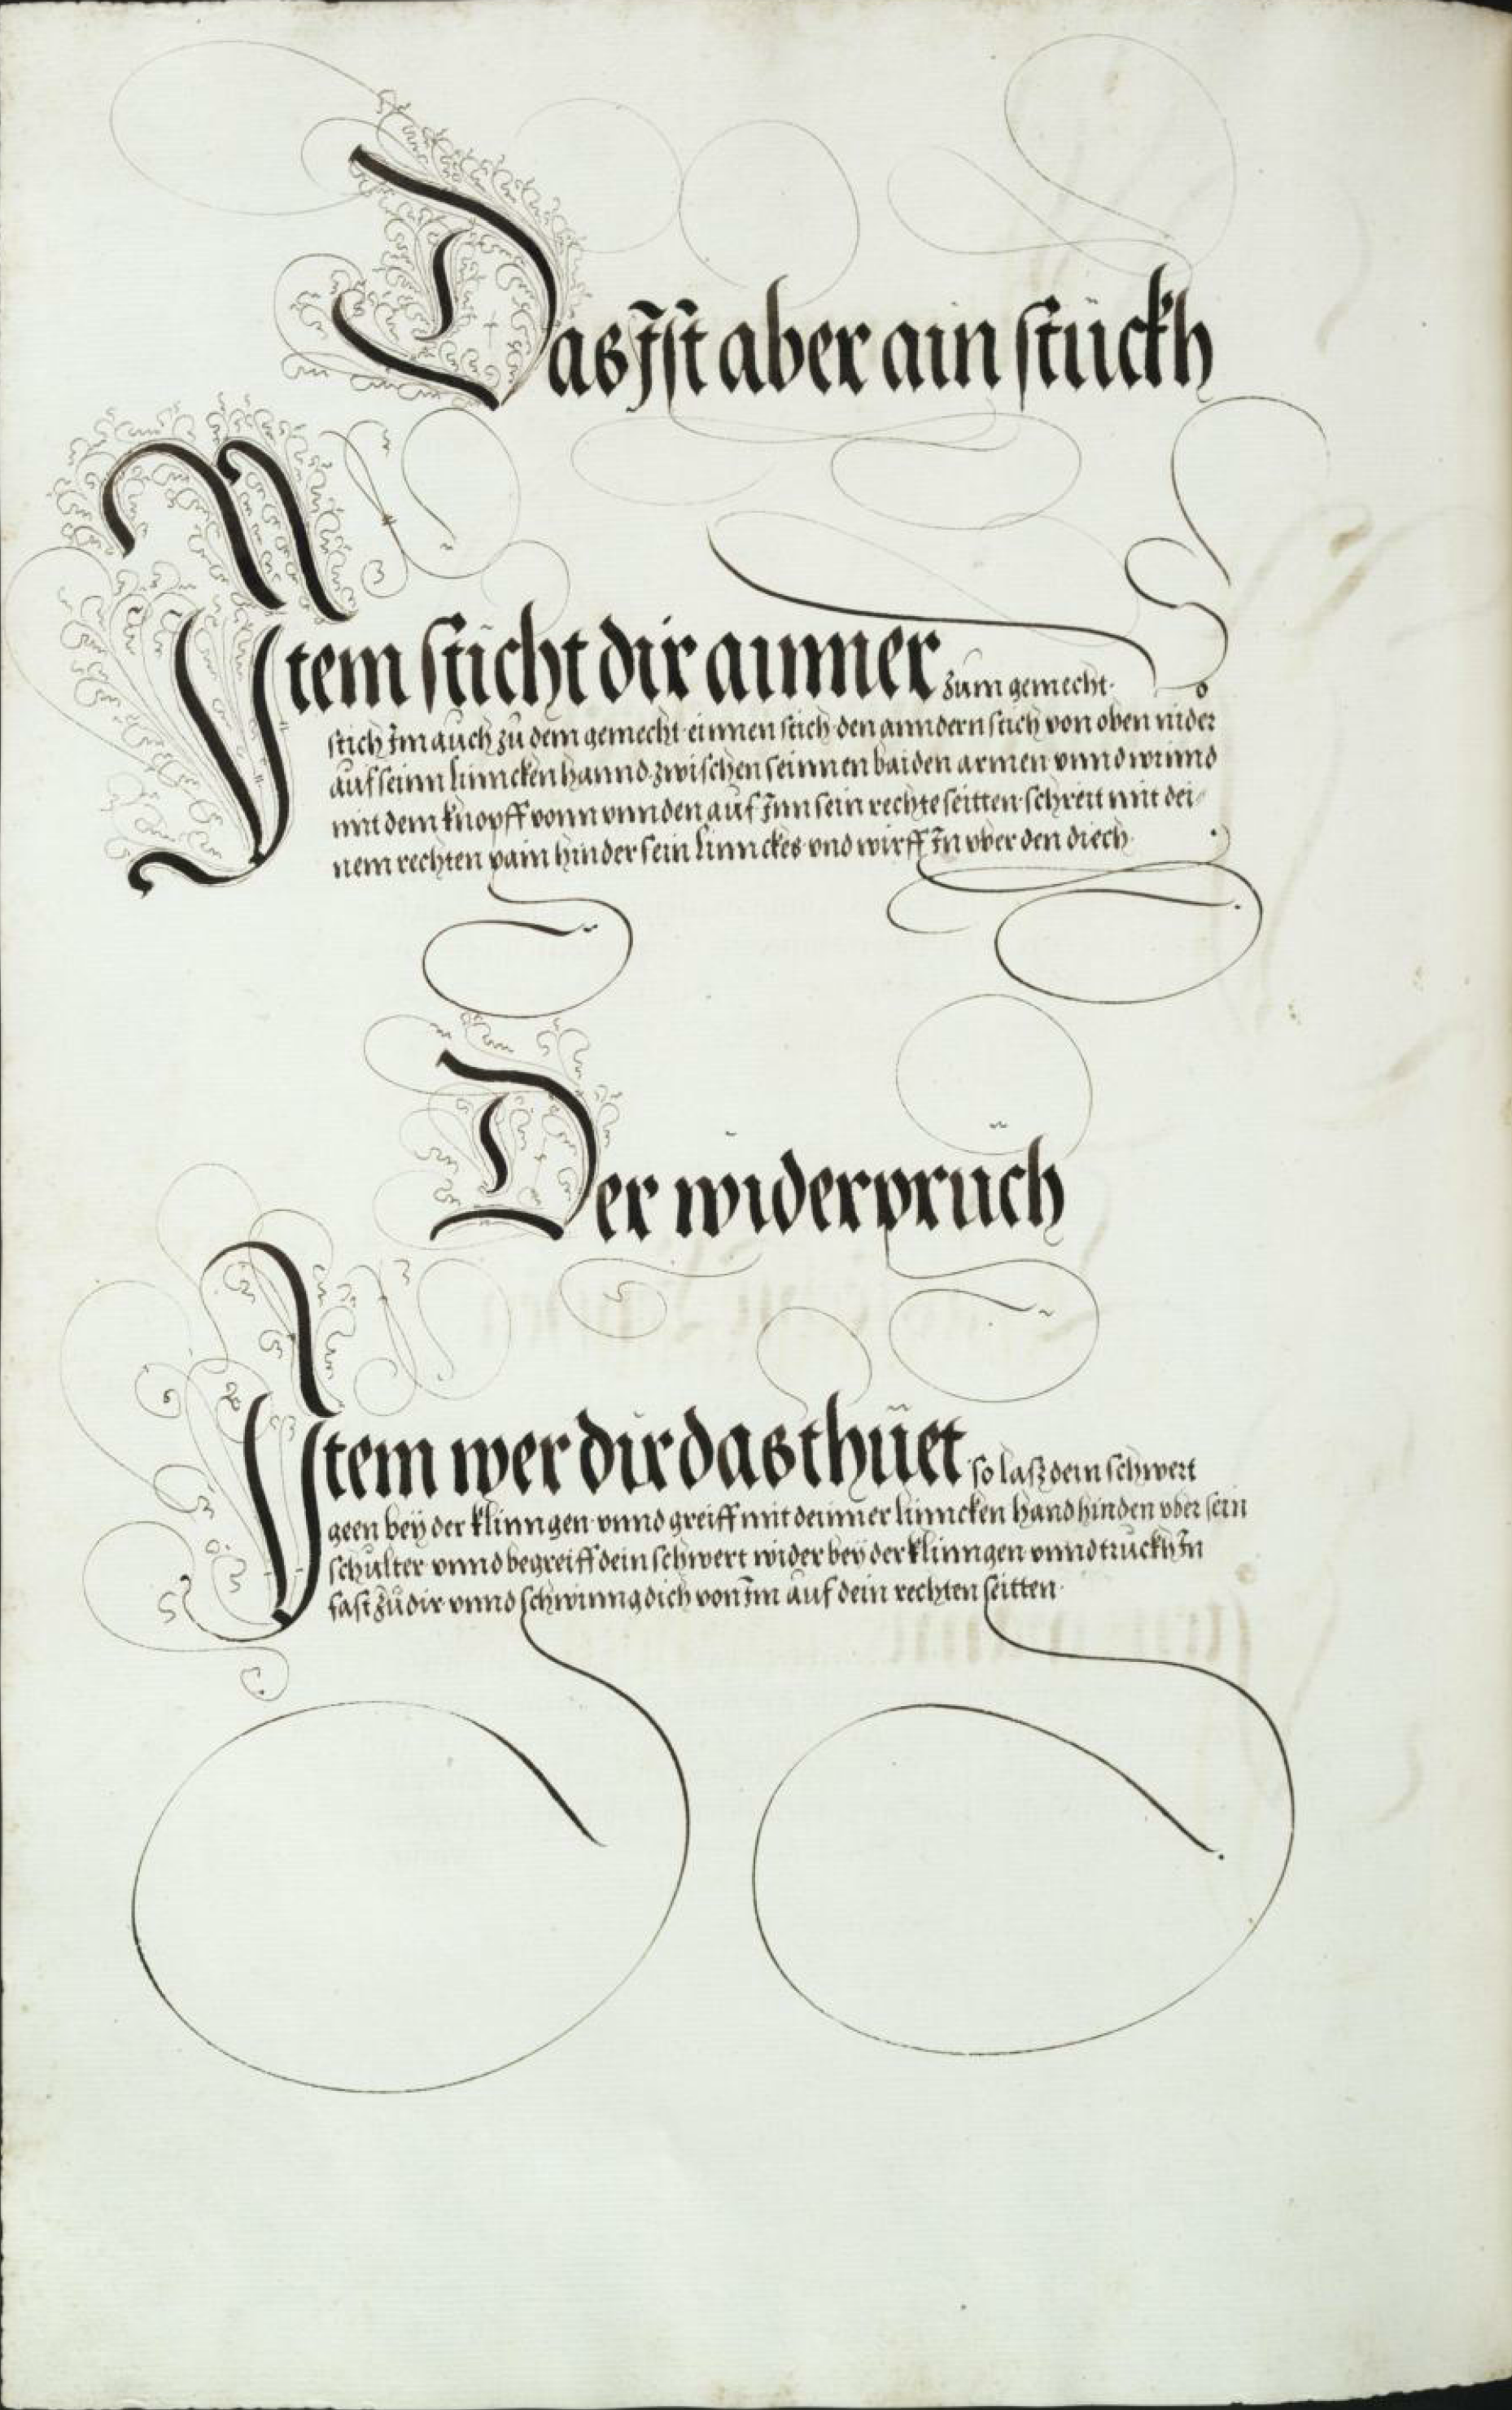 Das Ist aber ain stückh
Item sticht dir ainner zum gemecht
stich Im auch zu dem gemecht einnen stich den anndern stich von oben nider
auf seinn linncken hannd zwischen seinnen baiden armen vnnd winnd
mit dem knopff vonn vnnden auf Inn sein rechte seitten schreit mit dei-
nem rechten pain hinder sein linnckes vnd wirff In vber den diech
Der widerpruch
Item wer dir das thüet so lasz dein schwert
geen bey der klinngen vnnd greiff mit deinner linncken hand hinden vber sein
schulter vnnd begreiff dein schwert wider bey der klinngen vnnd truckh In
fast zů dir vnnd schwinng dich von Im auf dein rechten seitten